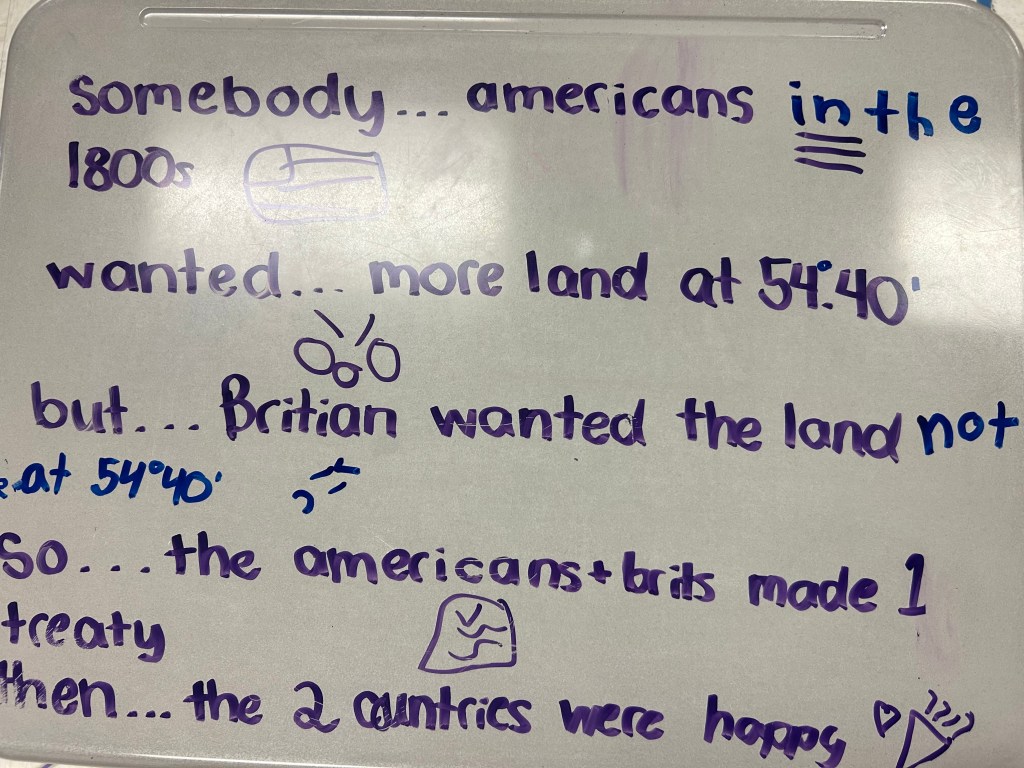 somebody... americans in the
1800s
wanted... more land at 54°.40'
but... Britian wanted the land not
at 54°40'
So... the americans + brits made 1
treaty
then... the 2 countries were happy